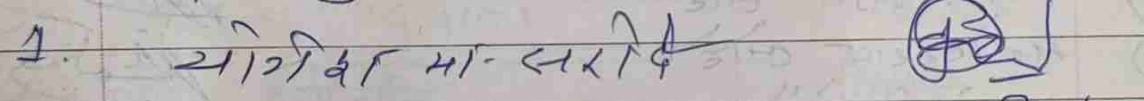 1. योगेश मा. सरोदे